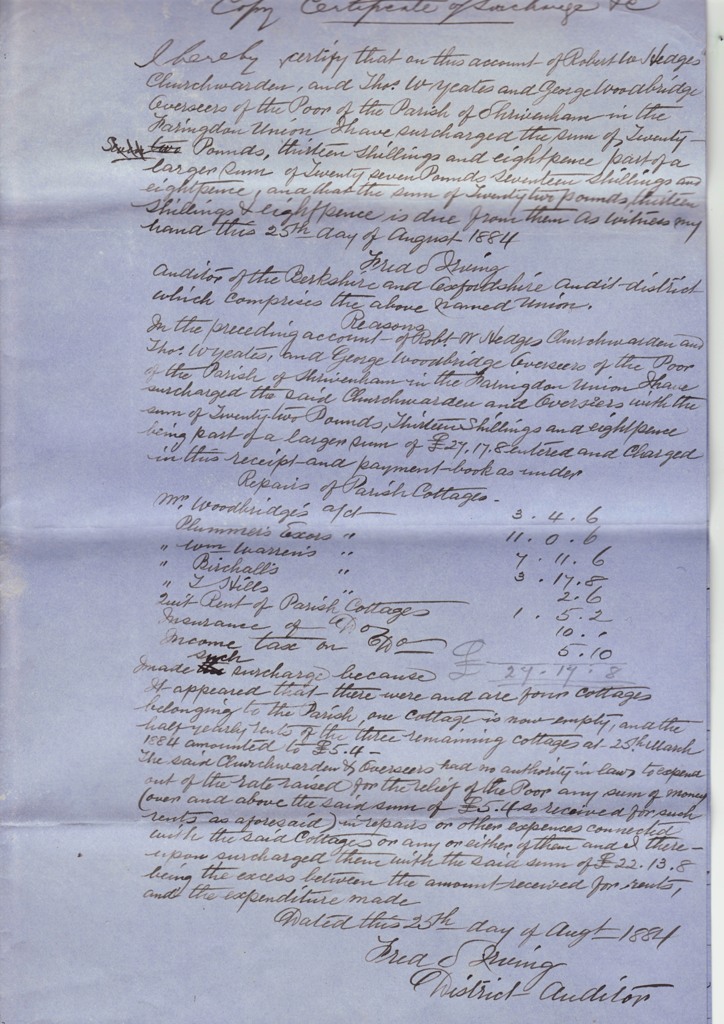 Copy Certificate of Surcharge &c
I hereby certify that on this account of Robert W Hedges
Churchwarden, and Thos. Wyeates and George Woodbridge
Overseers of the Poor of the Parish of Shrivenham in the
Faringdon Union I have surcharged the sum of Twenty-
two Pounds, thirteen shillings and eightpence part of a
larger sum of Twenty seven Pounds seventeen shillings and
eightpence, and that the sum of Twenty two pounds, thirteen
shillings & eightpence is due from them As witness my
hand this 25th day of August 1884
Fred S Irving
Auditor of the Berkshire and Oxfordshire Audit district
which comprises the above named Union.
Reasons
In the preceding account of Robt W Hedges Churchwarden and
Thos. Wyeates, and George Woodbridge Overseers of the Poor
of the Parish of Shrivenham in the Faringdon Union I have
surcharged the said Churchwarden and Overseers with the
sum of Twenty two Pounds, Thirteen Shillings and eightpence
being part of a larger sum of £27.17.8 entered and charged
in this receipt and payment book as under
Repairs of Parish Cottages.
Mr. Woodbridge's a/ct 3.4.6
Plummer's Exors " 11.0.6
" Wm Warren's " 7.11.6
" Birchall's " 3.17.8
" T Hills " 2.6
Quit Rent of Parish Cottages 1.5.2
Insurance of Do 10."
Income tax on Do 5.10
£ 27.17.8
made such surcharge because
It appeared that there were and are four cottages
belonging to the Parish, one cottage is now empty, and the
half yearly rents of the three remaining cottages at 25th March
1884 amounted to £5.4-
The said Churchwarden & Overseers had no authority in law to expend
out of the rate raised for the relief of the Poor any sum of money
(over and above the said sum of £5.4 so received for such
rents as aforesaid) in repairs or other expences connected
with the said Cottages or any or either of them and I there-
upon surcharged them with the said sum of £22.13.8
being the excess between the amount received for rents,
and the expenditure made
Dated this 25th day of Augt 1884
Fred S Irving
District Auditor